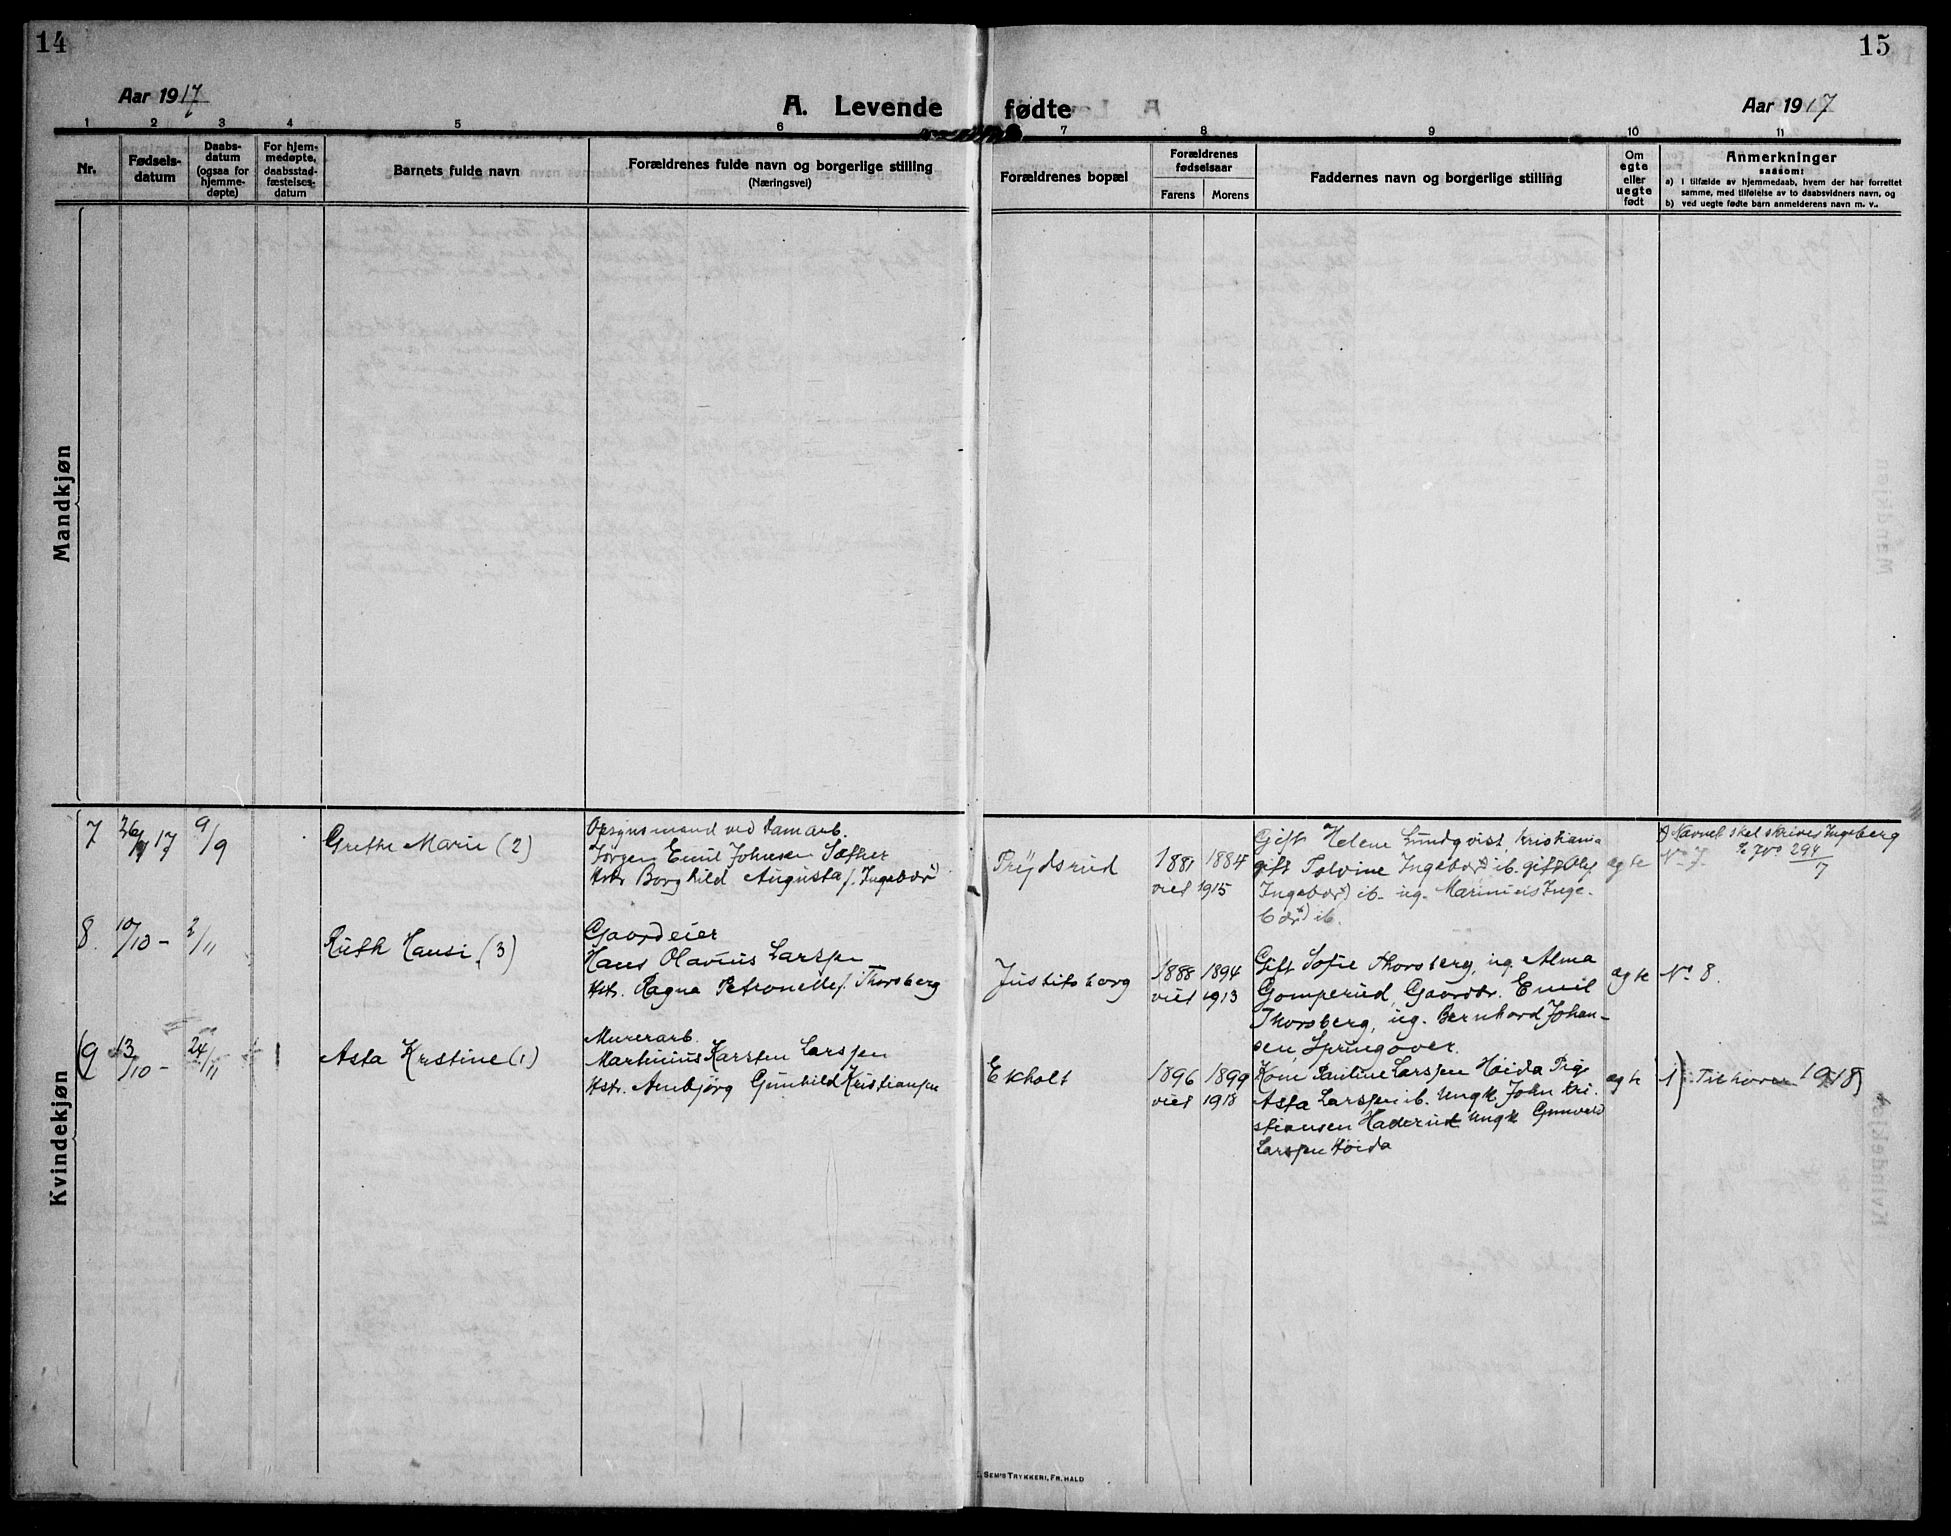 14
15
Aar 1917
A. Levende fødte
Aar 1917
1 2 3 4 5 6 7 8 9 10 11
Nr.
Fødsels-
datum
Daabs-
datum
(ogsaa for
hjemme-
døpte)
For hjem-
medøpte,
daabsstad-
fæstelses-
datum
Barnets fulde navn
Forældrenes fulde navn og borgerlige stilling
(Næringsvei)
Forældrenes bopæl
Forældrenes
fødselsaar
Farens
Morens
Faddernes navn og borgerlige stilling
Om
egte
eller
uegte
født
Anmerkninger
saasom:
a) I tilfælde av hjemmedaab, hvem der har forrettet
samme, med tilføielse av to daabsvidners navn, og
b) ved uegte fødte barn anmelderens navn m. v..
Mandkjøn
Kvindekjøn
7
17
9/9
Grethe Marie (2)
Opsynsmand ved Damarb.
Jørgen Emil Johnsen Sæther
Hstr Borghild Augusta f. Ingebær
Prydsrud
1881 1884
viet 1915
Gift Helene Lundqvist, Kristiania
gift Tolvine Ingebær ib. gift Oluf
Ingebær ib. ug. Marinius Inge-
bær ib.
egte
Navnet skal skrives Ingeberg
No 7.
8.
10/10 -
2/11
Ruth Hansi (3)
Gaardeier
Hans Olavius Larsen
Hstr. Ragna Petronelle f. Thorsberg
Justitsborg
1888 1894
viet 1913
Gift Sofie Thorsberg, ug. Alma
Gomperud, Gaardbr. Emil
Thorsberg, ug. Bernhard Johan-
sen, Springover.
egte
No 8.
(9
13/10 -
24/11
Asta Kristine (1)
Murerarb.
Martinius Karsten Larsen
Hstr. Annbjørg Gunhild Kristiansen
Ekholt
1896 1899
viet 1918
Kone Pauline Larsen Høida Pige
Asta Larsen ib. Ungk. John Kri-
stiansen Haderud Ungk Gunvald
Larsen Høida
egte
1) Tilhører 1918)
SEM'S TRYKKERI, FR. HALD